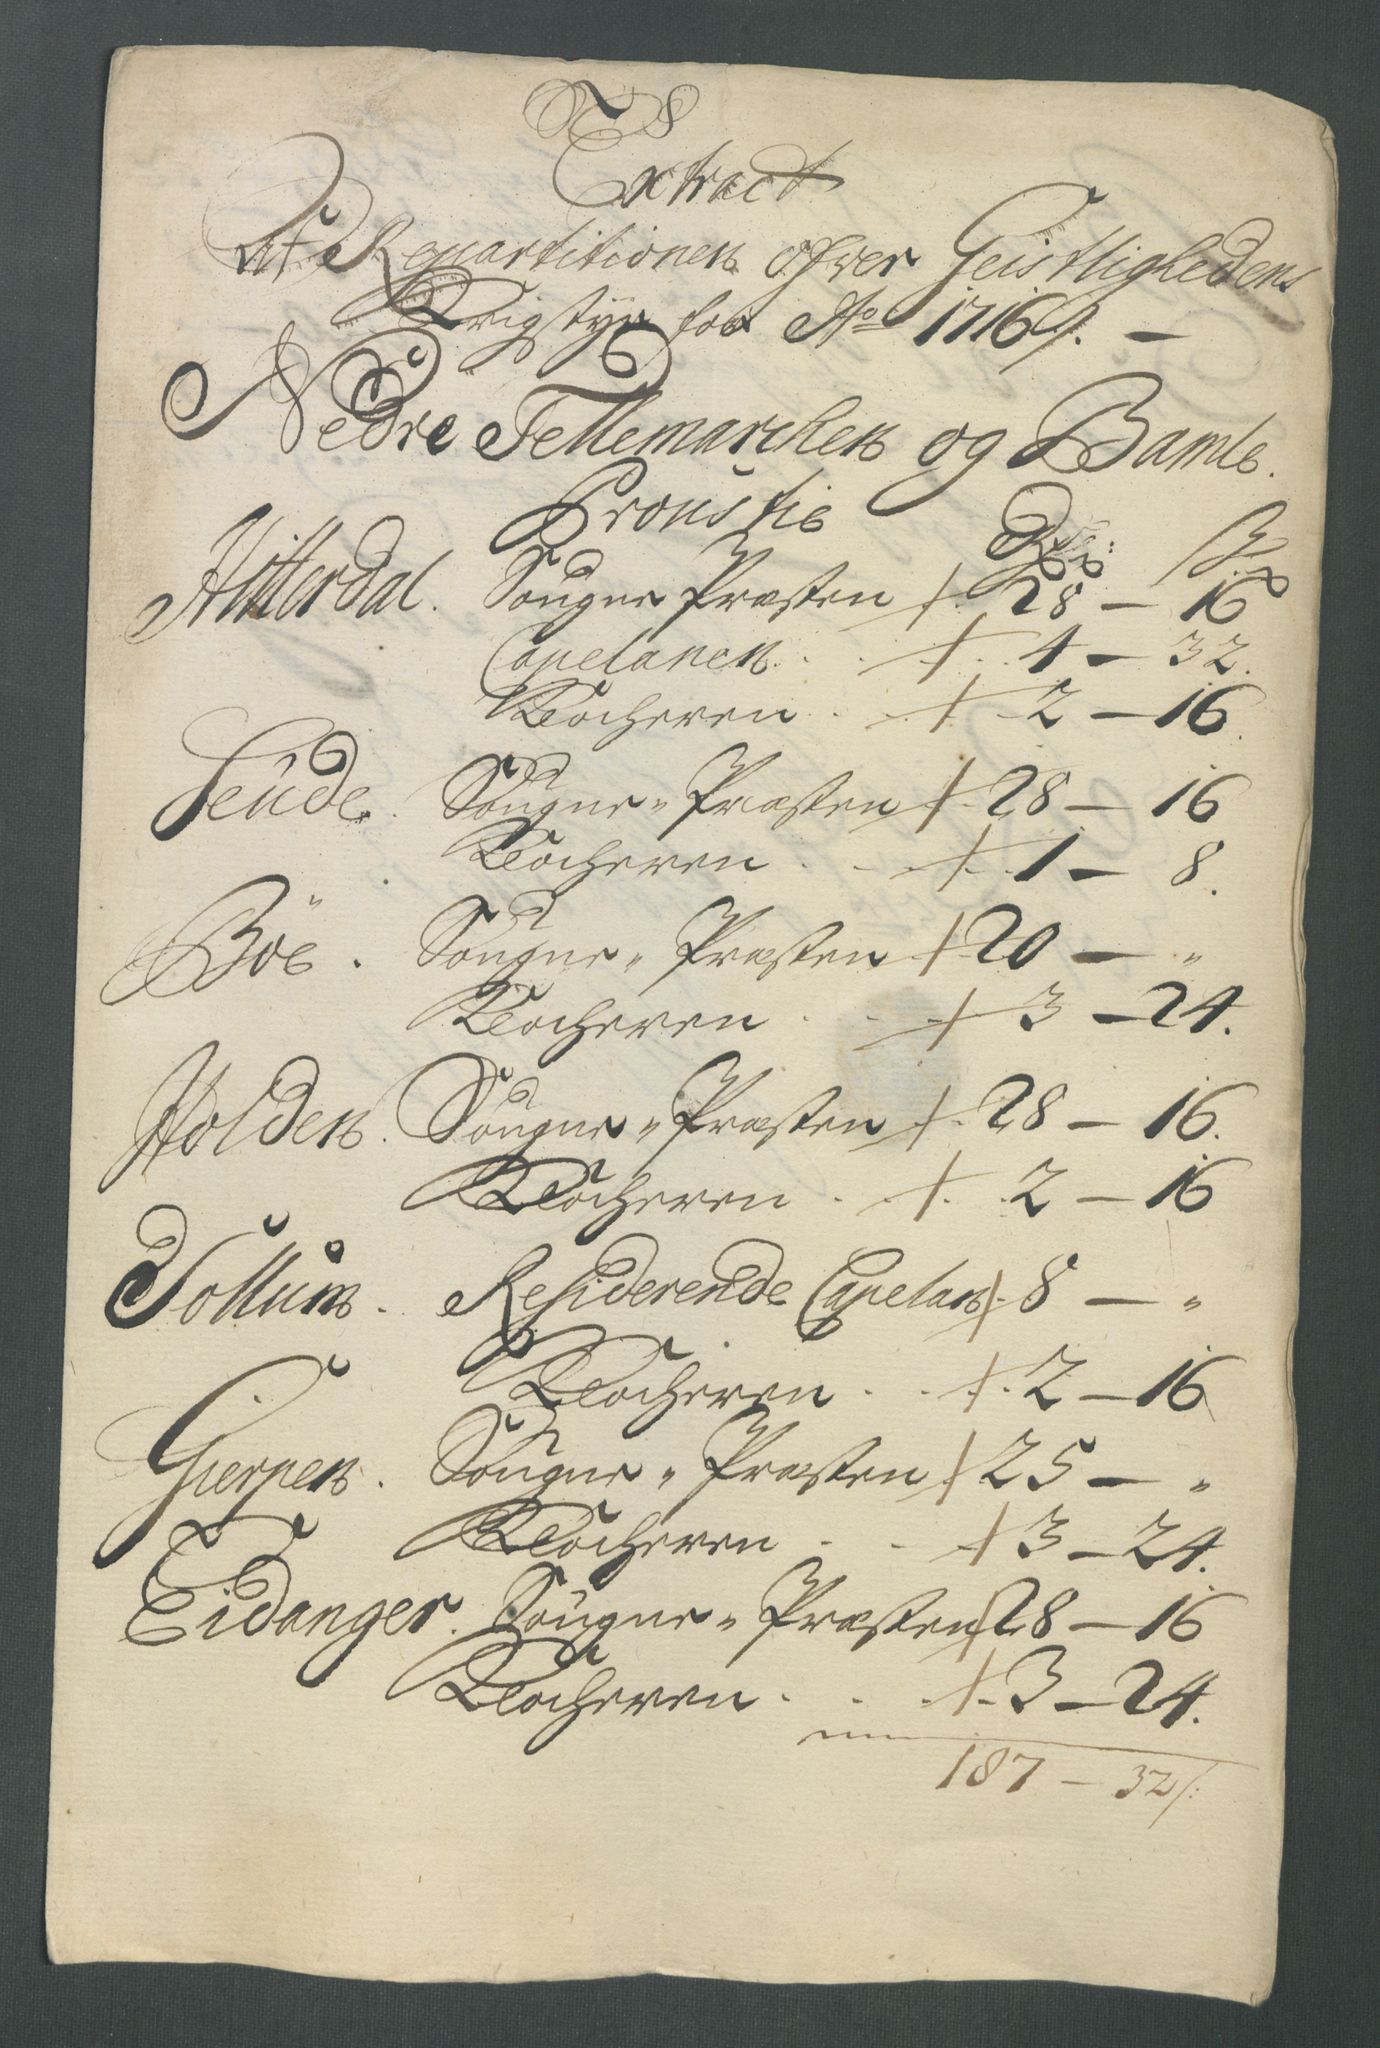 Extract
Af Repartitionen ofver Geistlighedens
Krigstyr for Ao 1716 /. —
Nedre Tellemarchen og Bamle.
Proustie Rdr: ß
Hitterdal. Sougne Præsten 28 — 16
Capelanen. . . 4 — 32.
Klocheren . . 2 — 16.
Seude. Sougne- Præsten 28 — 16
Klocheren . . . 1 — 8.
Böe. Sougne- Præsten 20 — "
Klocheren . . . 3 — 24.
Holden. Sougne- Præsten 28 — 16.
Klocheren . . . 2 — 16
Sollum. Residerende Capelan 8 — "
Klocheren . . . 2 — 16
Gierpen. Sougne- Præsten 25 — "
Klocheren . . . 3 — 24.
Eidanger. Sougne- Præsten 28 — 16
Klocheren . . . 3 — 24.
187 — 32/: